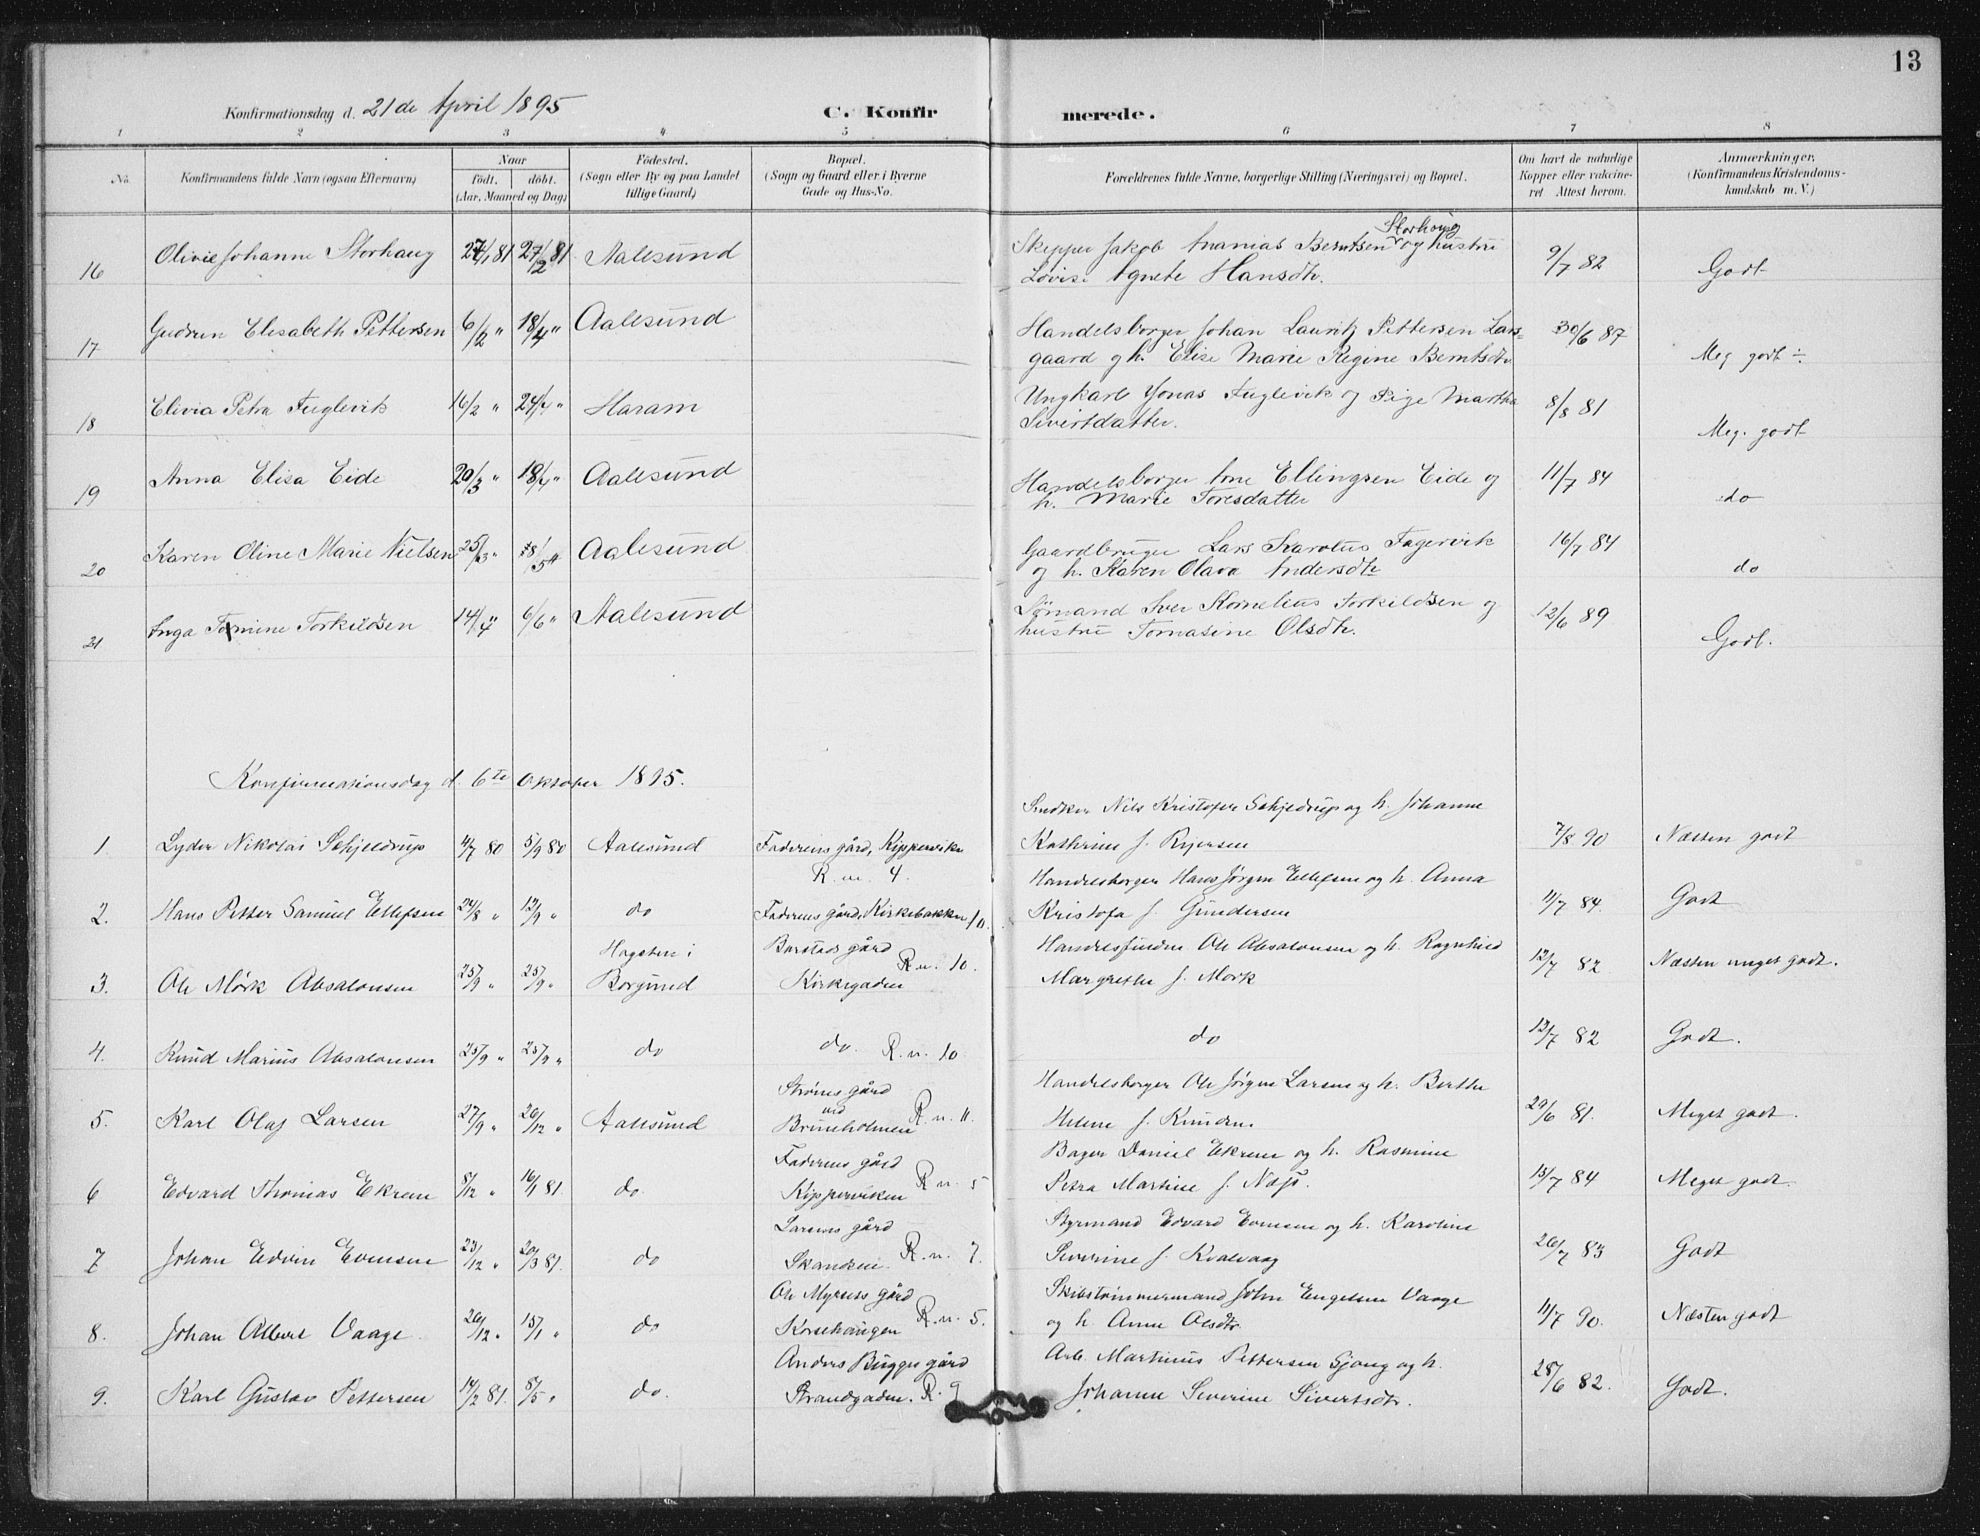 13
Konfirmationsdag d. 21de April 1895
C. Konfirmerede.
1 2 3 4 5 6 7 8
No. Konfirmandens fulde Navn (ogsaa Efternavn) Naar født. døbt. (Aar, Maaned og Dag) Fødested. (Sogn eller By og paa Landet tillige Gaard) Bopæl. (Sogn og Gaard eller i Byerne Gade og Hus-No. Forældrenes fulde Navne, borgerlige Stilling (Næringsvei) og Bopæl. Om havt de naturlige Kopper eller vakcineret Attest herom. Anmærkninger. (Konfirmandens Kristendomskundskab m. V.)
Storhoug
16 Olivie Johanne Storhaug 27/1 81 27/2 81 Aalesund Skipper Jakob Ananias Berntsen og hustru 9/7 82 Godt
Lovise Agnete Hansdtr.
17 Gudrun Elisabeth Pettersen 6/2 " 18/4 " Aalesund Handelsborger Johan Lauritz Pettersen Lars= 30/6 87 Meg godt ÷
gaard og h. Elise Marie Regine Berntsdtr
18 Elivia Petra Fuglevik 16/2 " 24/4 " Haram Ungkarl Jonas Fuglevik og Pige Martha 8/8 81 Meg. godt
Sivertdatter.
19 Anna Elisa Eide 20/3 " 18/4 " Aalesund Handelsborger Ellingsen Eide og 11/7 84 do
h. Marie Toresdatter
20 Karen Oline Marie Nielsen 25/3 " /5 " Aalesund Gaardbruger Lars Karolus Fagervik 16/7 84 do
og h. Karen Olava Andersdtr
21 Inga Torkildsen 14/4 " 6/6 " Aalesund Sømand Iver Kornelius Torkildsen og 12/6 89 Godt.
hustru Tomasine Olsdtr.
Konfirmationsdag d. 6te Oktober 1895.
Snedker Nils Kristofer Schjeldrup og h. Johanne
1. Lyder Nikolai Schjeldrup 11/7 80 5/9 80 Aalesund Faderens gård, Kipperviken Kathrine f. Rejersen 7/8 90 Næsten godt
R. n. 4.
Handelsborger Hans Jørgen Ellefsen og h. Anna
2. Hans Petter Samuel Ellefsen 24/8 " 12/9 " do Faderens gård, Kirkebakken 10. Kristofa f. Gundersen 11/7 84. Godt
Hagsten i Barstads gård R. n. 10. Handelsfuldm. Ole Absalonsen og h. Ragnhild
3. Ole Mørk Absalonsen 25/9 " 25/9 " Borgund Kirkegaden Margrethe f. Mørk 12/7 82 Næsten meget godt.
4. Knud Marius Absalonsen 25/9 " 25/9 " do do. R. n. 10 do 12/7 82 Godt.
Strøms gård Handelsborger Ole Jørgen Larsen og h. Berthe
5. Karl Olaf Larsen 27/9 " 26/12 " Aalesund ved Brunholmen R. n. 11. Helene f. Knudsen. 29/6 81. Meget godt.
Faderens gård Bager Daniel Ekrem og h. Rasmine
6 Edvard Thomas Ekrem 8/12 " 16/1 81. do. Kipperviken R. n. 5 Petra Martine f. 15/7 84 Meget godt.
Larsens gård Styrmand Edvard Evensen og h. Karoline
7 Johan Edvin Evensen 23/12 " 20/3 81. do Skandsen. R. n. 7. Severine f. Kvalvaag 26/7 83 Godt
Ole Myrsets gård Skibstømmermand John Engelsen Vaage
8. Johan Albert Vaage. 26/12 " 15/1 " do Korsehaugen R. n. 5. og h. Anne Olsdtr 11/7 90. Næsten godt
Anders Bugges gård Arb. Martinus Pettersen Gjong og h.
9. Karl Gustav Pettersen 14/2 81. 8/5 " do. Strandgaden. R. 9 Johanne Severine Sivertsdtr. 28/6 82. Godt.